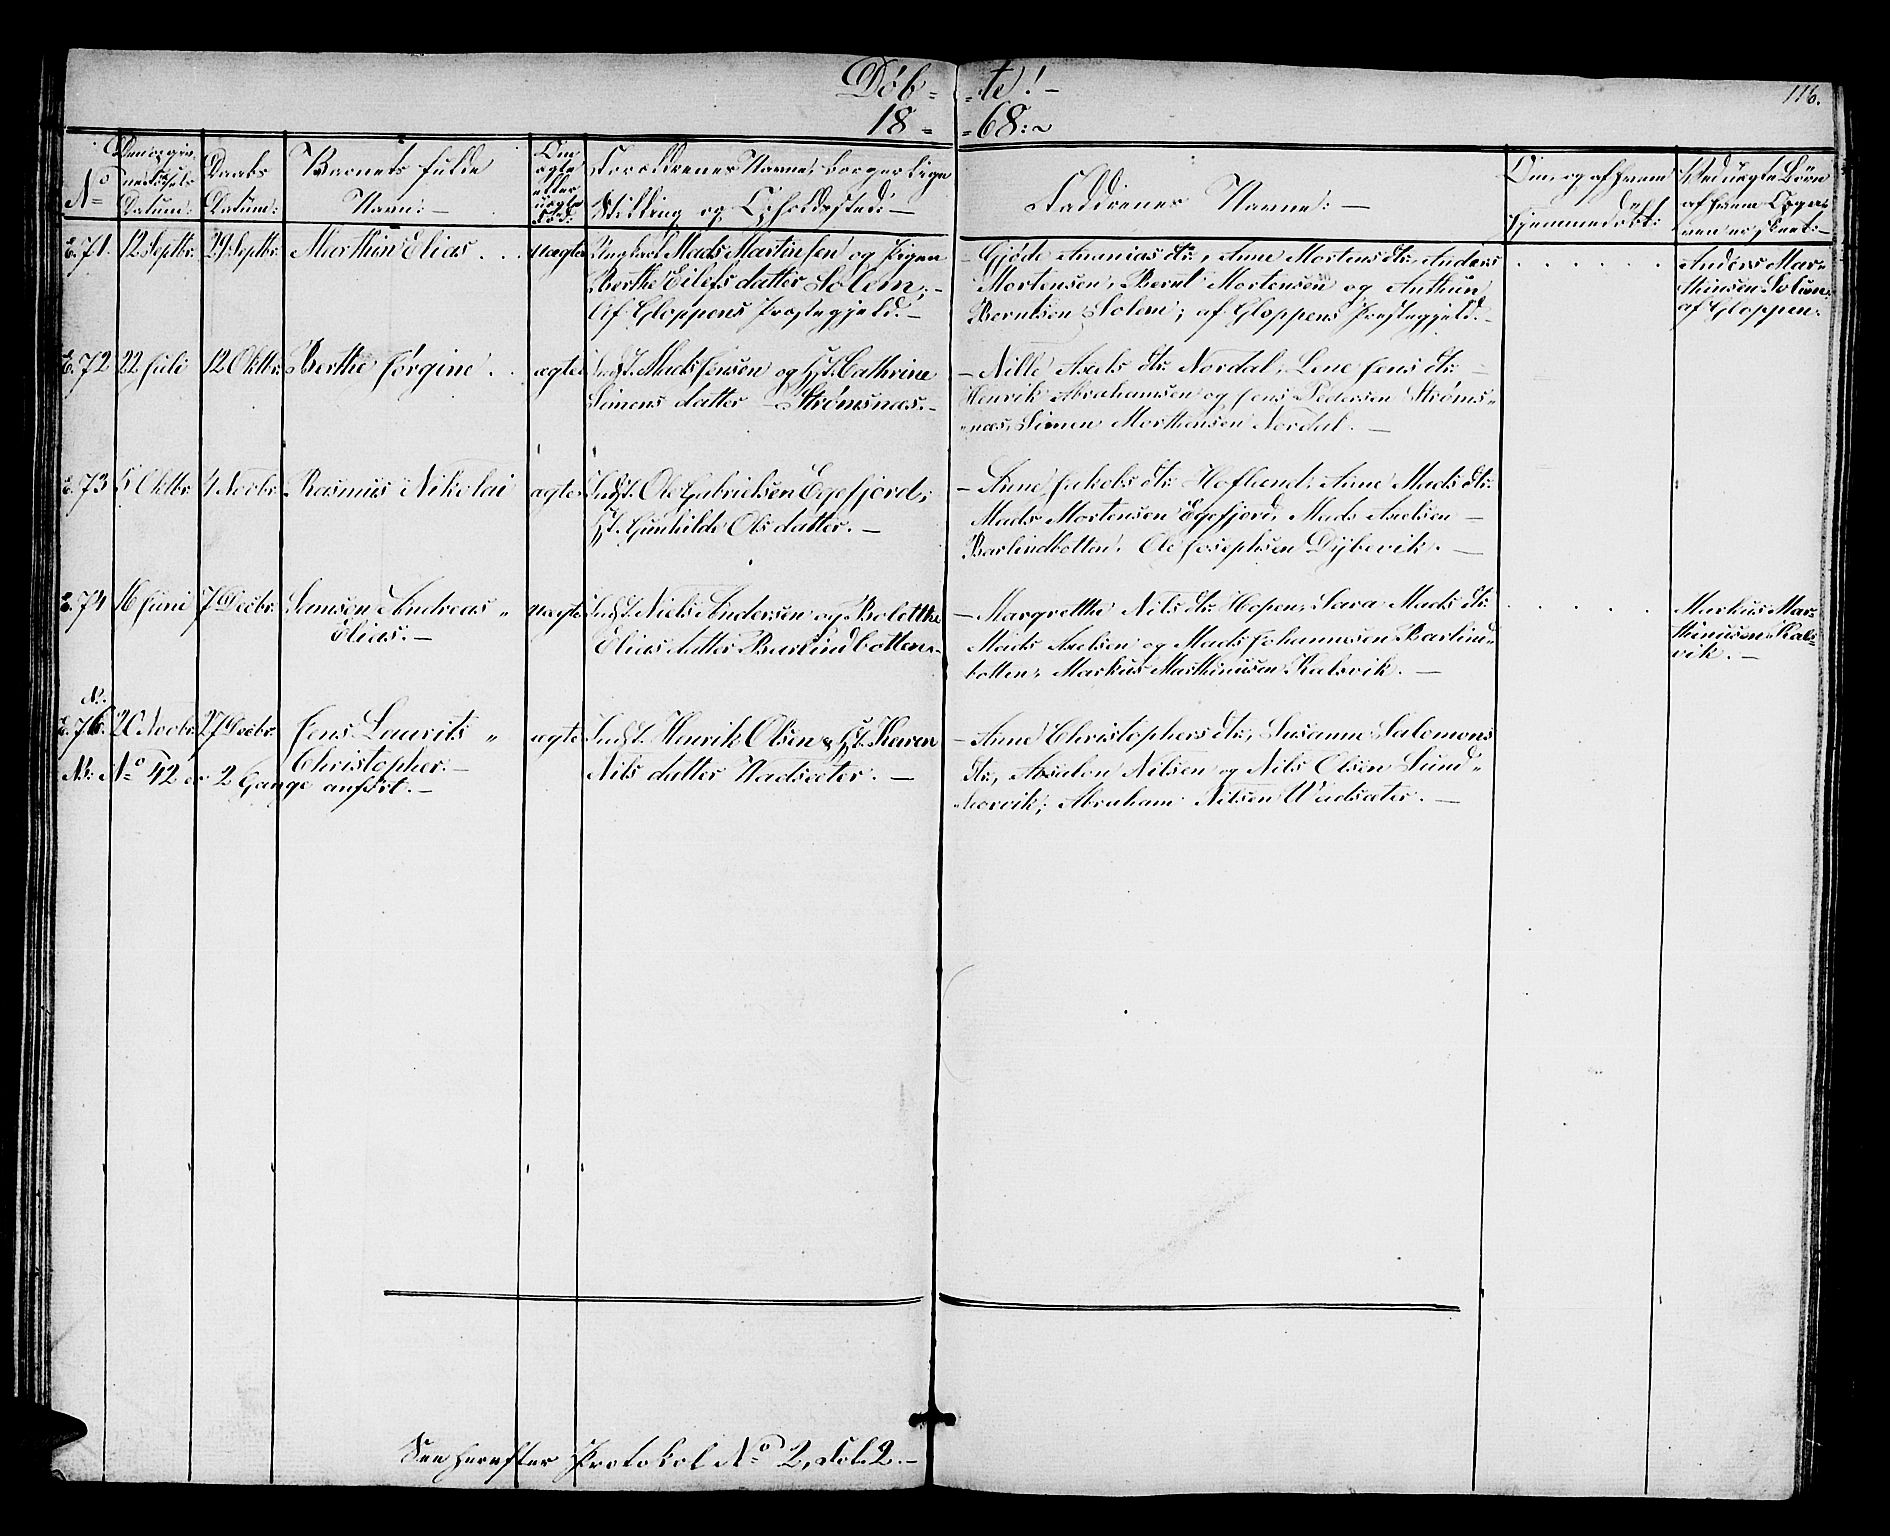 Døb- -te!-
18- -68:~
116.
No
Datum:
Daabs
Datum:
Barnets fulde
Navn:-
Om
ægte
eller
uægte
Forældrenes Navne, borgerlige
Stilling og Opholdssted:-
Faddrenes Navne:-
Om, og af hvem
hjemmedøbt:
Ved uægte Børn
af hvem Opgi-
71. 12 Septbr. 29 Septbr. Marthin Elias. . . uægte Ungkarl Mads Martinsen og Pigen
Berthe Eilefs datter Solem.-
Af Gloppens Præstegjeld.-
- Gjøde Ananias dtr., Anne Mortens dtr. Anders
Mortensen, Bernt Mortensen og Anthun
Berntsen Solem; af Gloppens Præstegjeld.-
Anders Mar-
thinsen Solem
af Gloppen.
72 22 Juli 12 Oktbr. Berthe Jørgine. . ægte Indst. Mads Jensen og Hst. Cathrine
Simons datter Strømsnæs.-
- Nille Axels dtr. Nordal, Lene Jens dtr. -
Henrik Abrahamsen og Jens Pedersen Strøms-
næs, Simen Morthensen Nordal. -
73 5 Oktbr. 1 Novbr. Rasmus Nikolai ægte Indst. Ole Gabrielsen Egefjord;
Hst. Gunhilde Ols datter. -
- Anne Jakobs dtr. Hofland; Anne Mads dtr.
Mads Mortensen Egefjord, Mads Axelsen -
Barlindbotten. Ole Josephsen Dybevik. -
74 16 Juni 7 Decbr. Samsen Andreas "
Elias.-
uægte Indst. Niels Andersen og Bolethe
Elias datter Barlindbotten.
- Margrethe Nils dtr. Hopen, Sara Mads dtr.
Mads Axelsen og Mads Johannesen Barlind-
botten, Markus Marthinusen Kalsvik. -
Markus Mar-
thinusen Kals-
vik. -
76. 20 Novbr. 27 Decbr. Jens Laurits "
Christopher.-
ægte Indst. Henrik Olsen & Hst. Karen
Nils datter Vadsæter. -
- Anne Christophers dtr., Susanne Salomons
dtr., Absalon Nilsen og Nils Olsen Lund-
Abraham Nilsen Vadsæter. -
Nb: No 42 er 2 Gange anført.-
See herefter Protokol No 2, Fol. 2.-